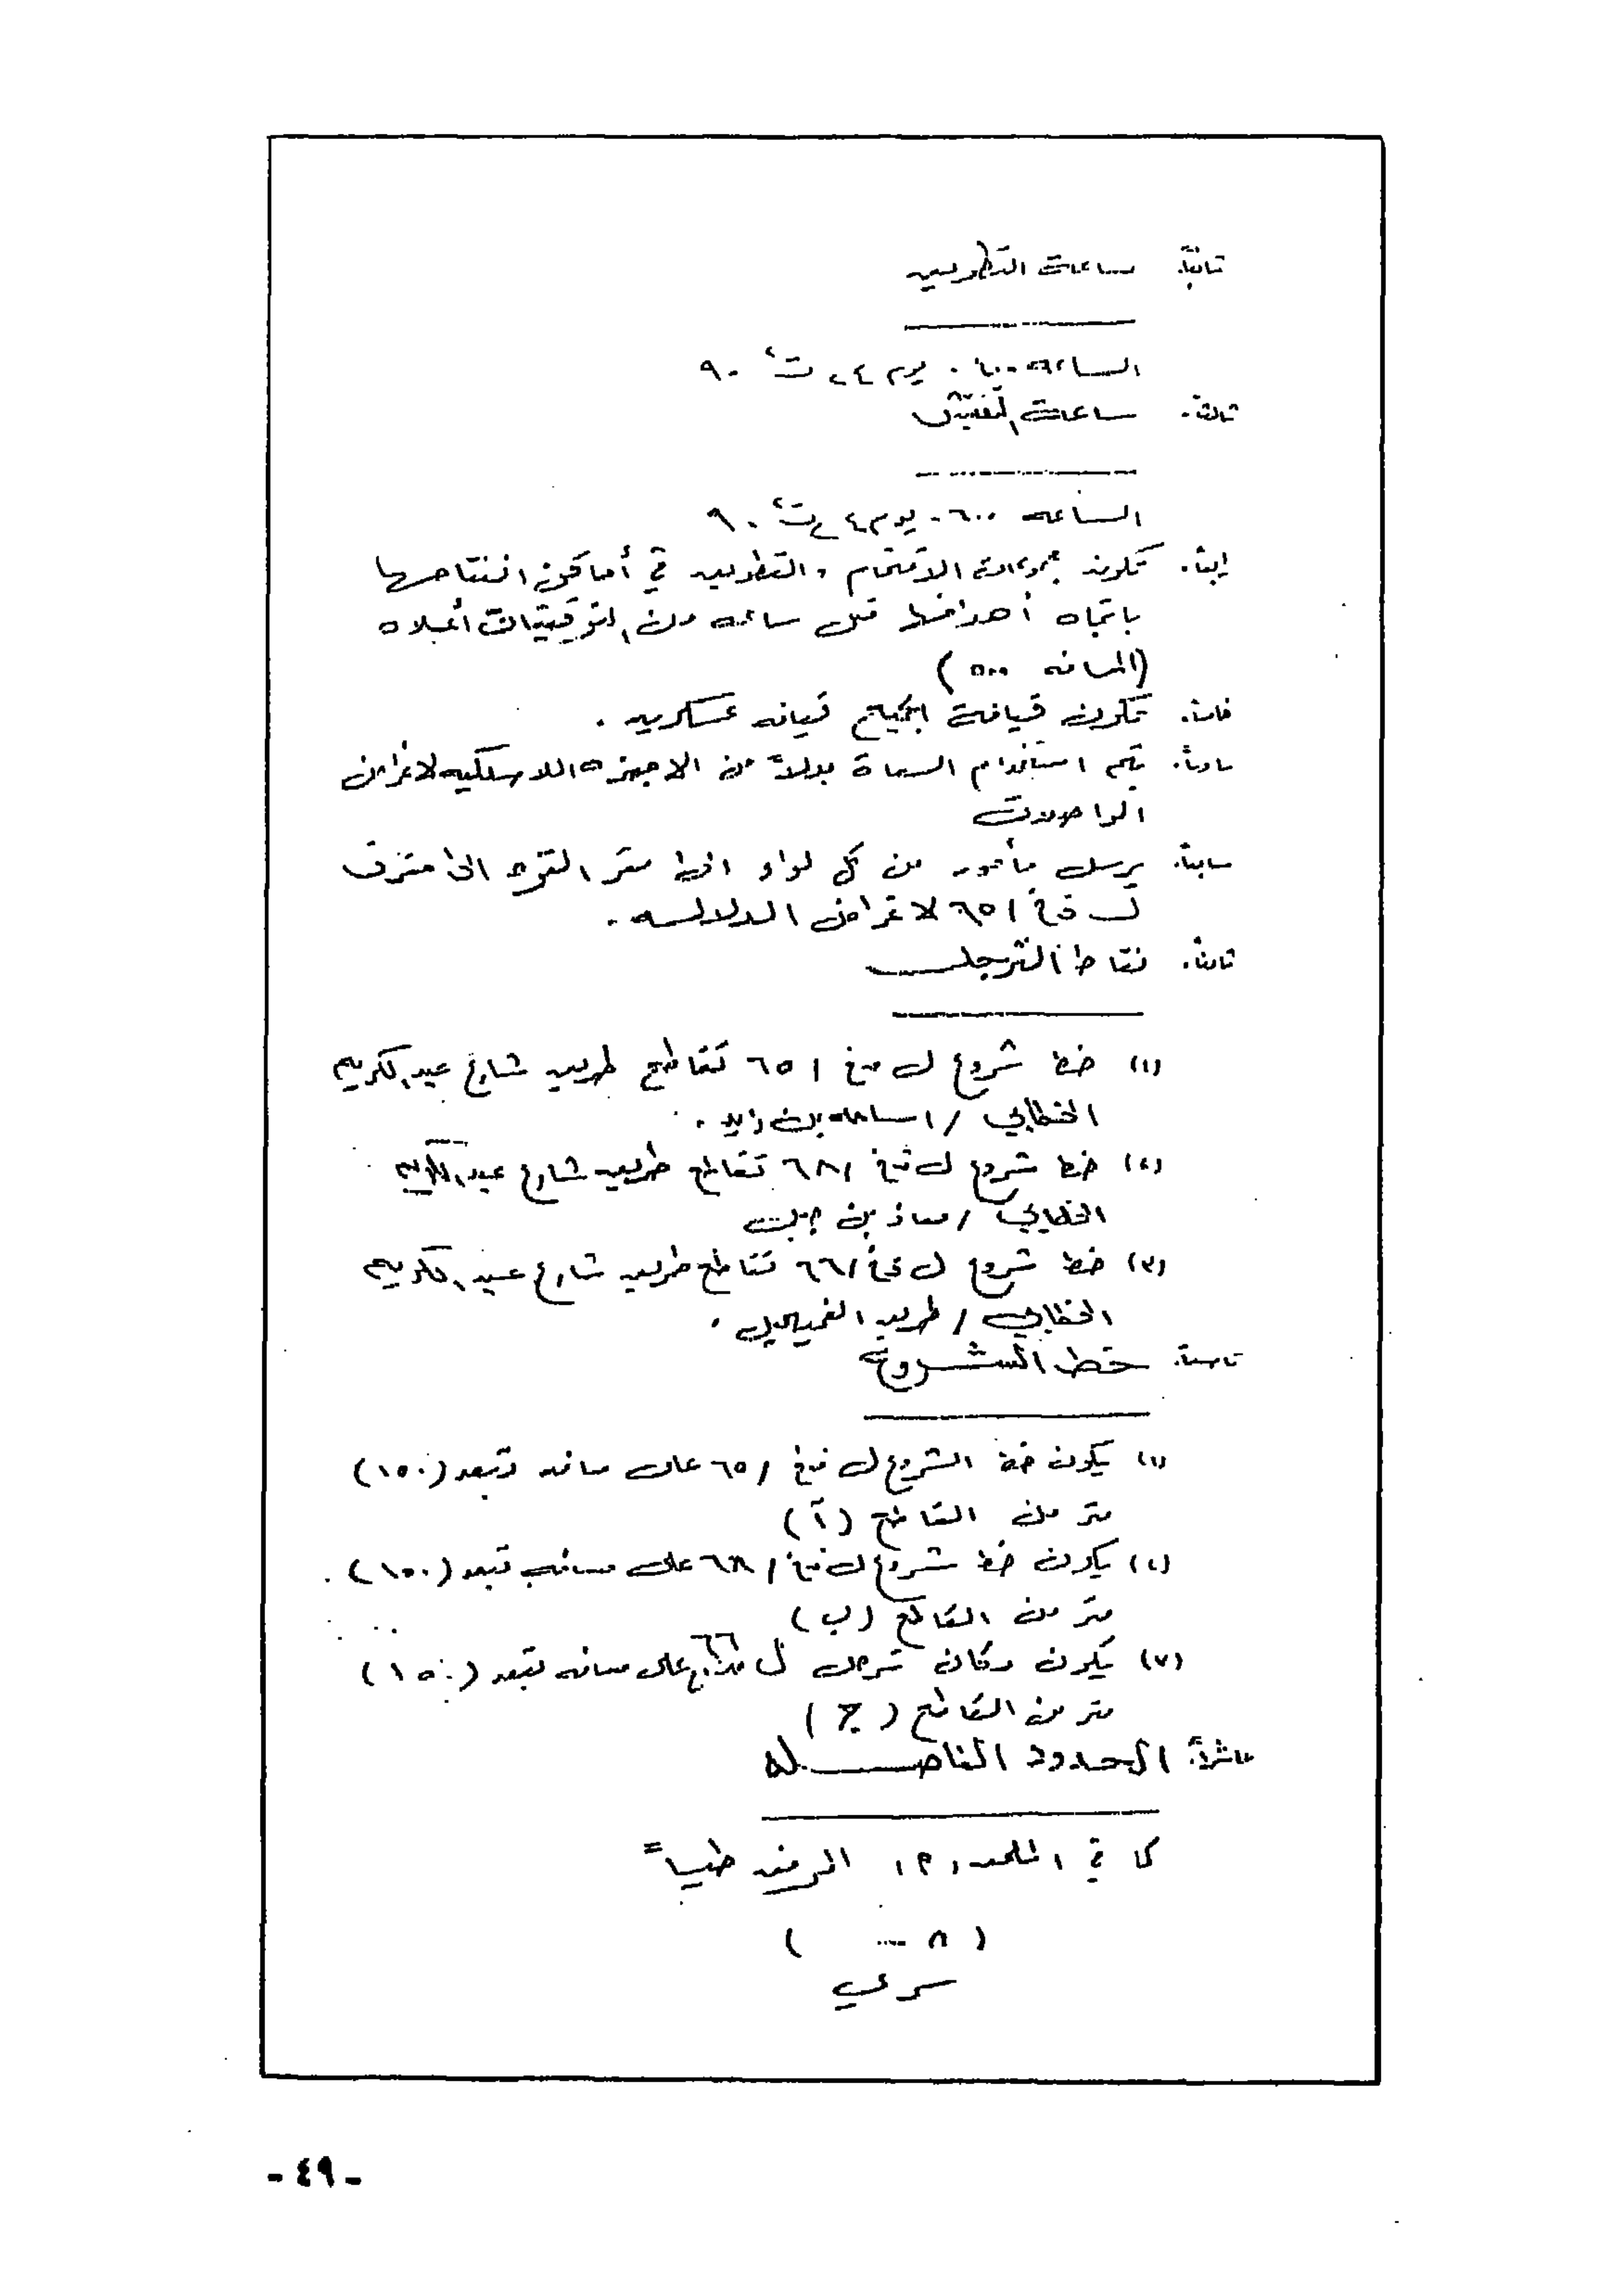 ثانياً. ساعات التطويق
الساعة ٠٦٠٠ يوم ٢٤ ت٢ ٩٠
ثالثاً. ساعات التفتيش
الساعه ٠٦٠٠ يوم ٢٤ ت٢ ٩٠
رابعاً. تكون مجموعات الاقتحام والتطويق في أماكن انفتاحها
باتجاه أهدافها قبل ساعه من التوقيتات أعلاه
(المسافه ٥٠٠)
خامساً. تكون قيافة الجميع قيافه عسكريه.
سادساً. يتم استخدام السعاة بدلاً من الاجهزه اللاسلكيه لاغراض
المواصلات
سابعاً. يرسل مأمور من كل لواء الى مقر القوه الى مفرق
ل ق خ / ٦٥ لاغراض الدلالـه.
ثامناً. نقاط الترجـل
(١) خط شروع ل ق خ / ٦٥ تقاطع طريق شارع عبدالكريم
الخطابي / اسامه بن زايد.
(٢) خط شروع ل ق خ / ٦٨ تقاطع طريق شارع عبدالكريم
الخطابي / معاذ بن جبل
(٣) خط شروع ل ق خ / ٦٦ تقاطع طريق شارع عبدالكريم
الخطابي / طريق الفحيحيل.
تاسعاً. خط الشـروع
(١) يكون خط الشروع ل ق خ / ٦٥ على مسافه تبعد (١٥٠)
متر من التقاطع (أ)
(٢) يكون خط شروع ل ق خ / ٦٨ على مسافه تبعد (١٥٠)
متر من التقاطع (ب)
(٣) يكون مكان ترجل ل ق خ ٦٦ على مسافه تبعد (١٥٠)
متر من التقاطع (ج)
عاشراً. الحدود الفاصـله
كما في الملحق (٢) المرفق طياً =
( ٨ ... )
سري
- ٤٩ -